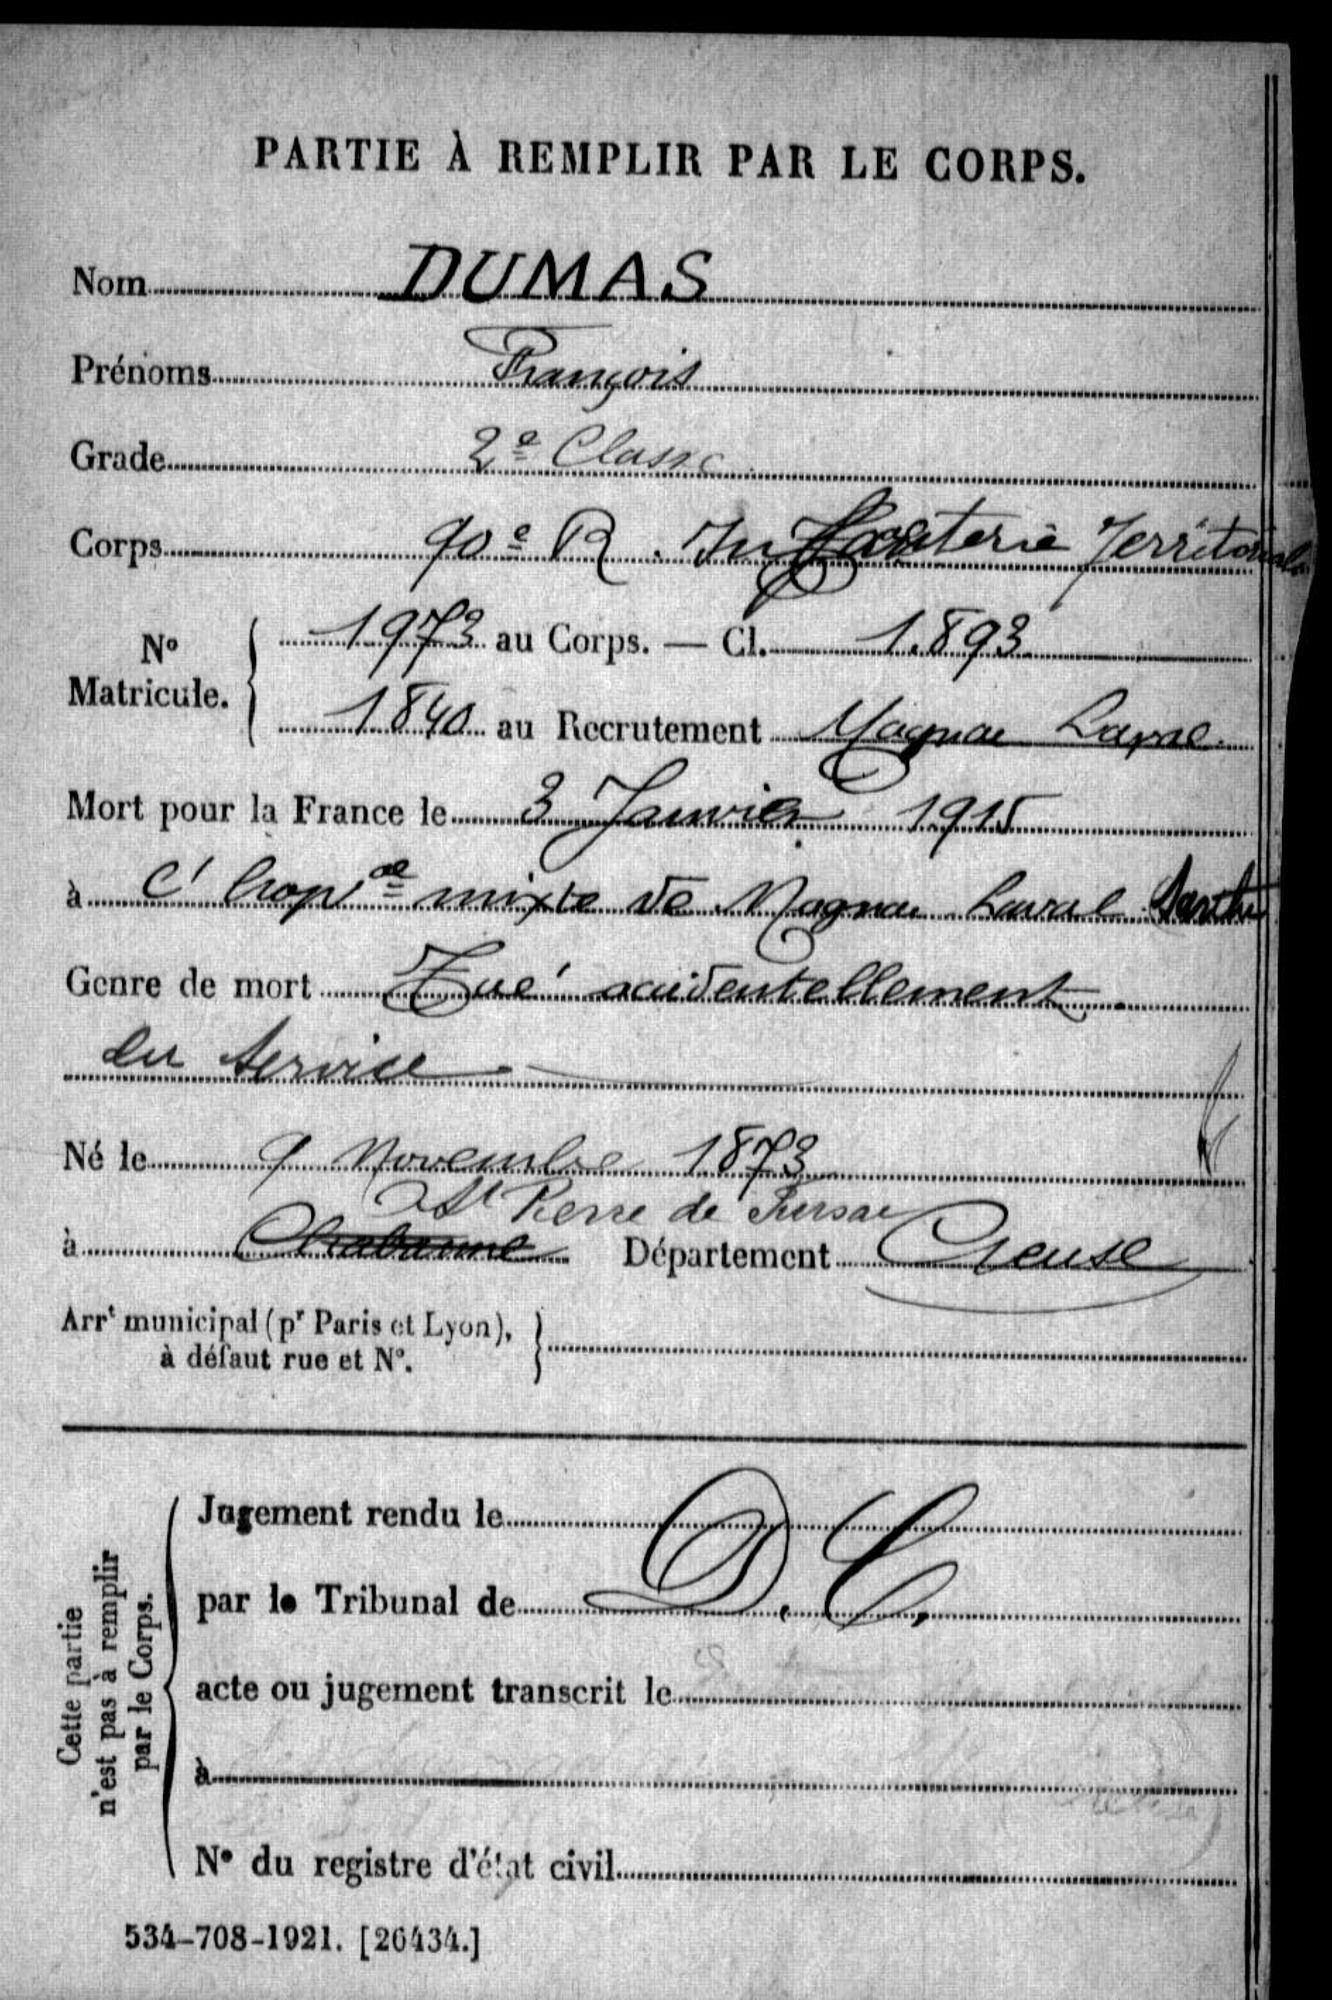 PARTIE À REMPLIR PAR LE CORPS.
Nom DUMAS
Prénoms François
Grade 2e Classe
Corps 90e R. Infanterie Territoriale
No Matricule. 1973 au Corps. — Cl. 1.893
1840 au Recrutement Magnac Laval
Mort pour la France le 3 Janvier 1915
à l'hopal mixte de Magnac Laval
Genre de mort Tué accidentellement
en Service
Né le 9 Novembre 1873
St Pierre de Fursac
à Chabanne Département Creuse
Arrt municipal (pr Paris et Lyon),
à défaut rue et No.
Cette partie n'est pas à remplir par le Corps.
Jugement rendu le
par le Tribunal de D. C.
acte ou jugement transcrit le
à
No du registre d'état civil
534-708-1921. [26434.]